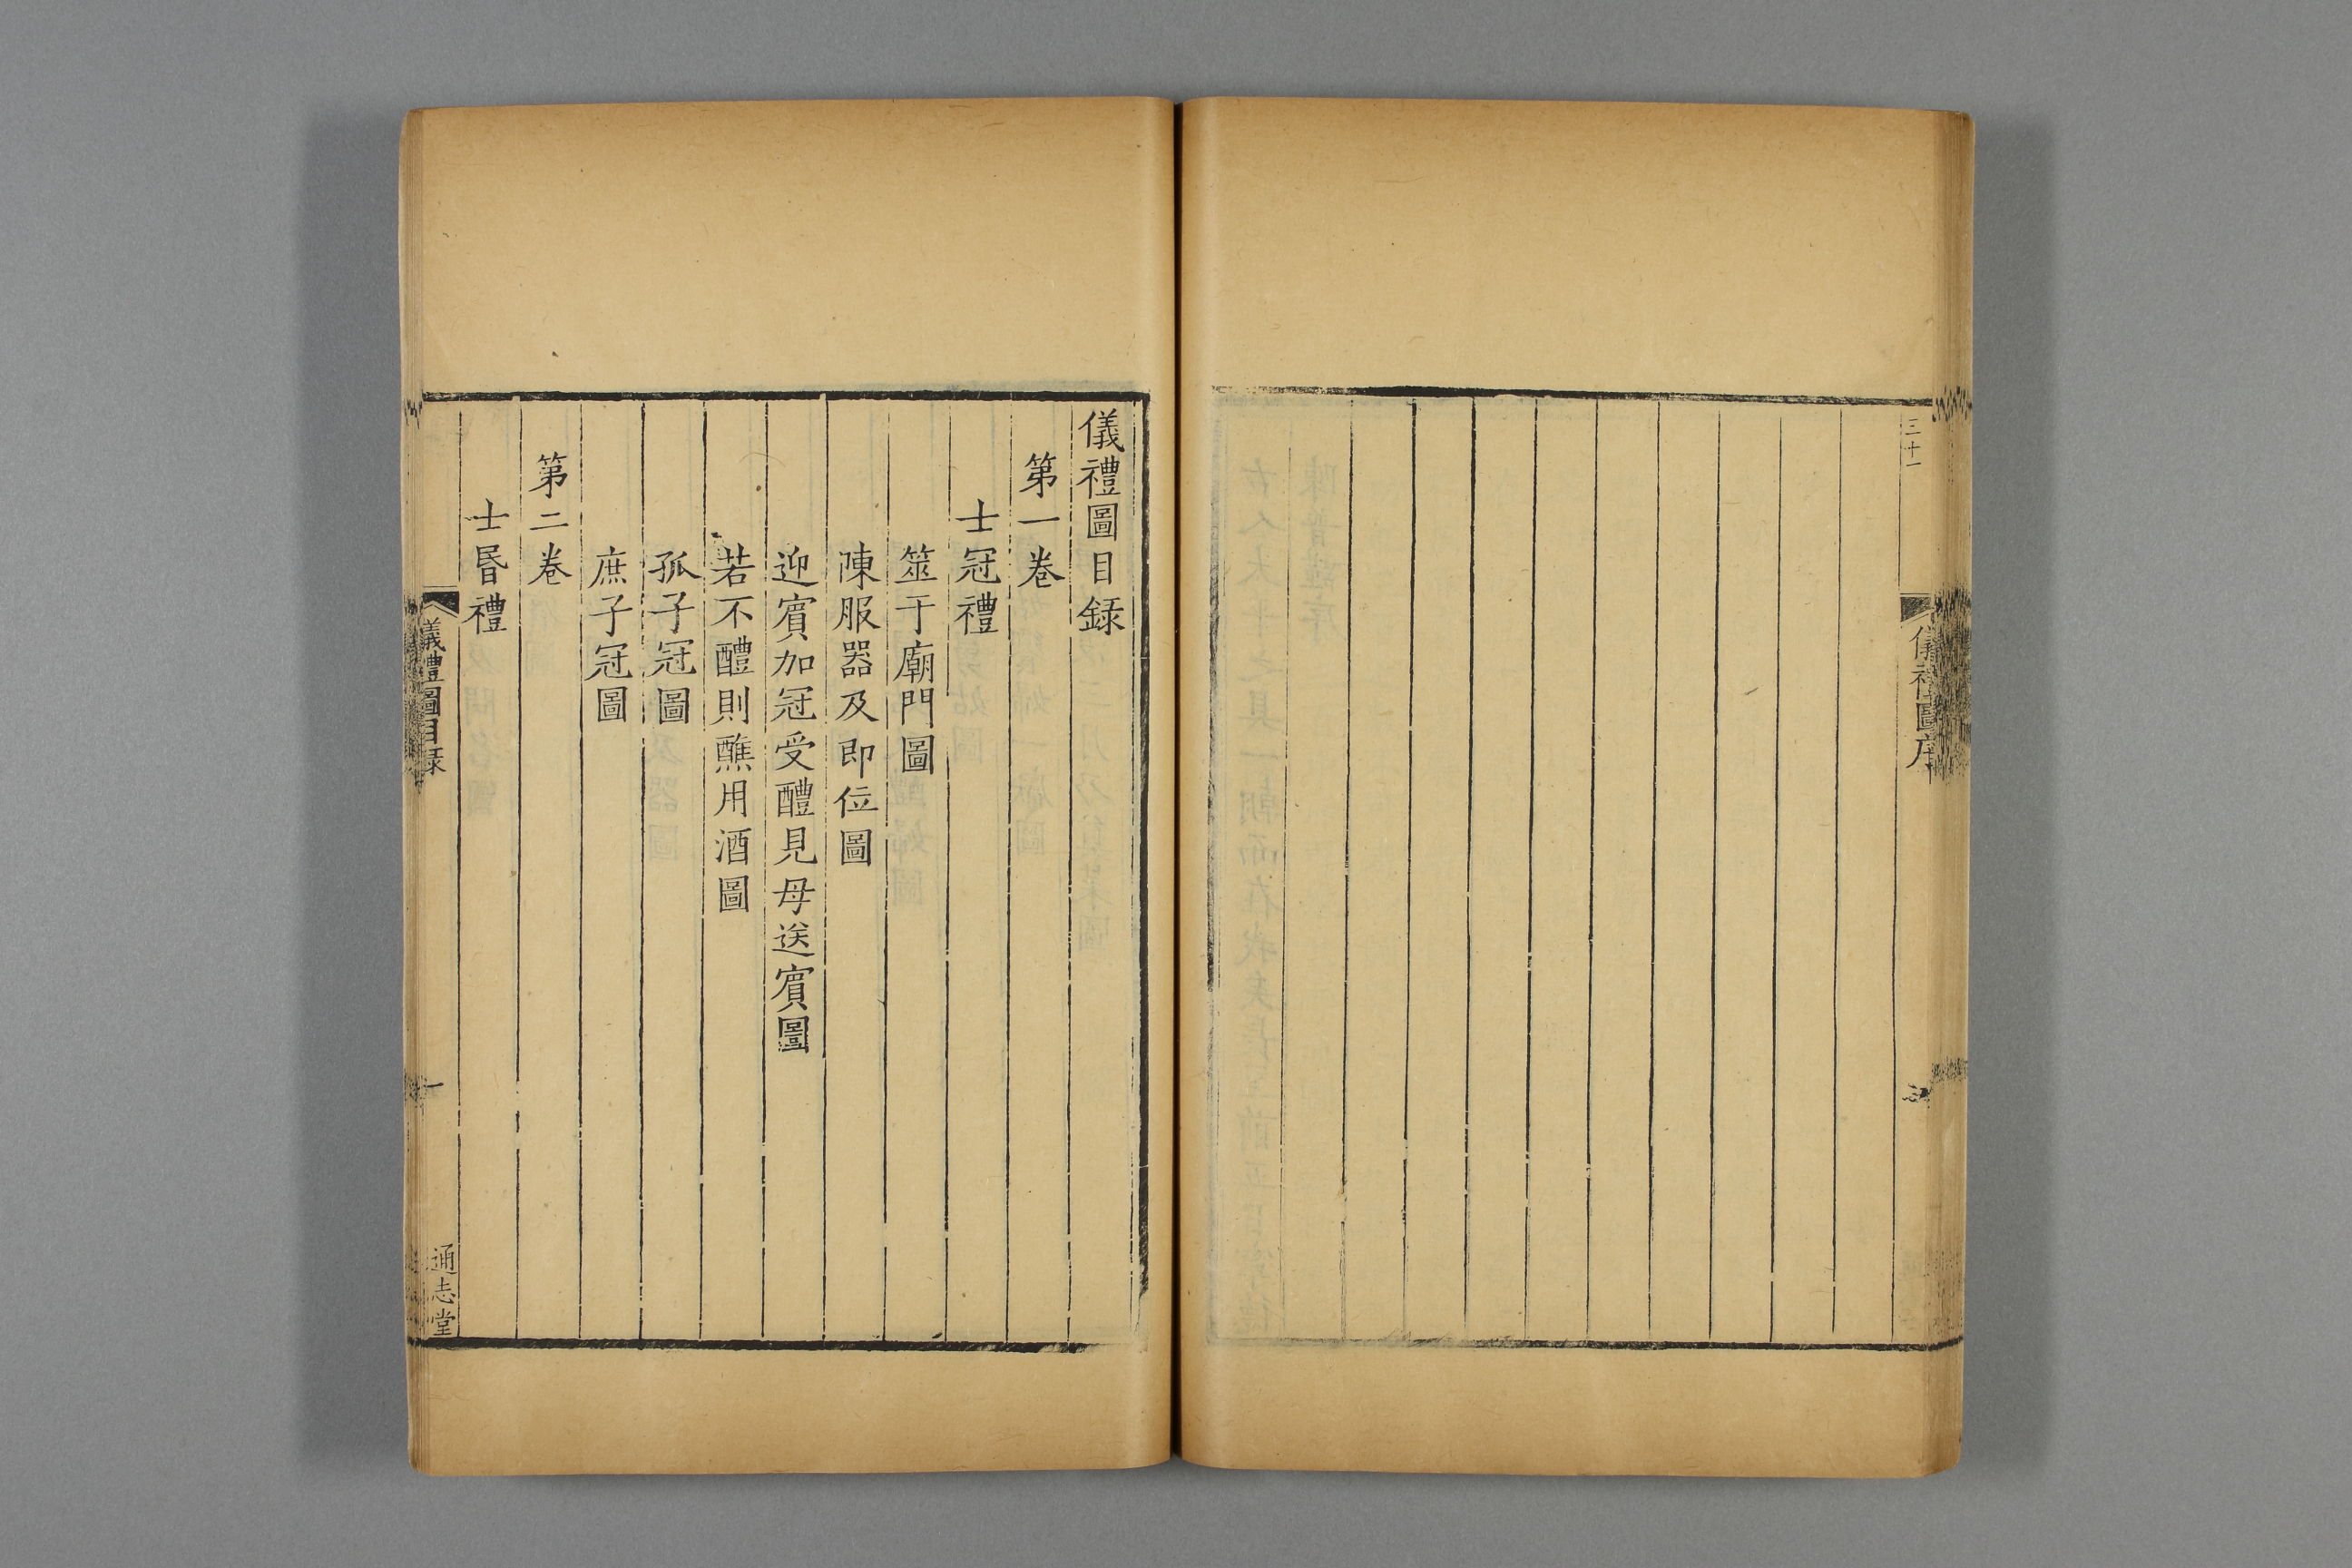 三十一
儀禮圖序
儀禮圖目録
第一卷
士冠禮
筮于廟門圖
陳服器及即位圖
迎賔加冠受醴見母送賔圖
若不醴則醮用酒圖
孤子冠圖
庶子冠圖
第二卷
士昬禮
儀禮圖目録
一
通志堂